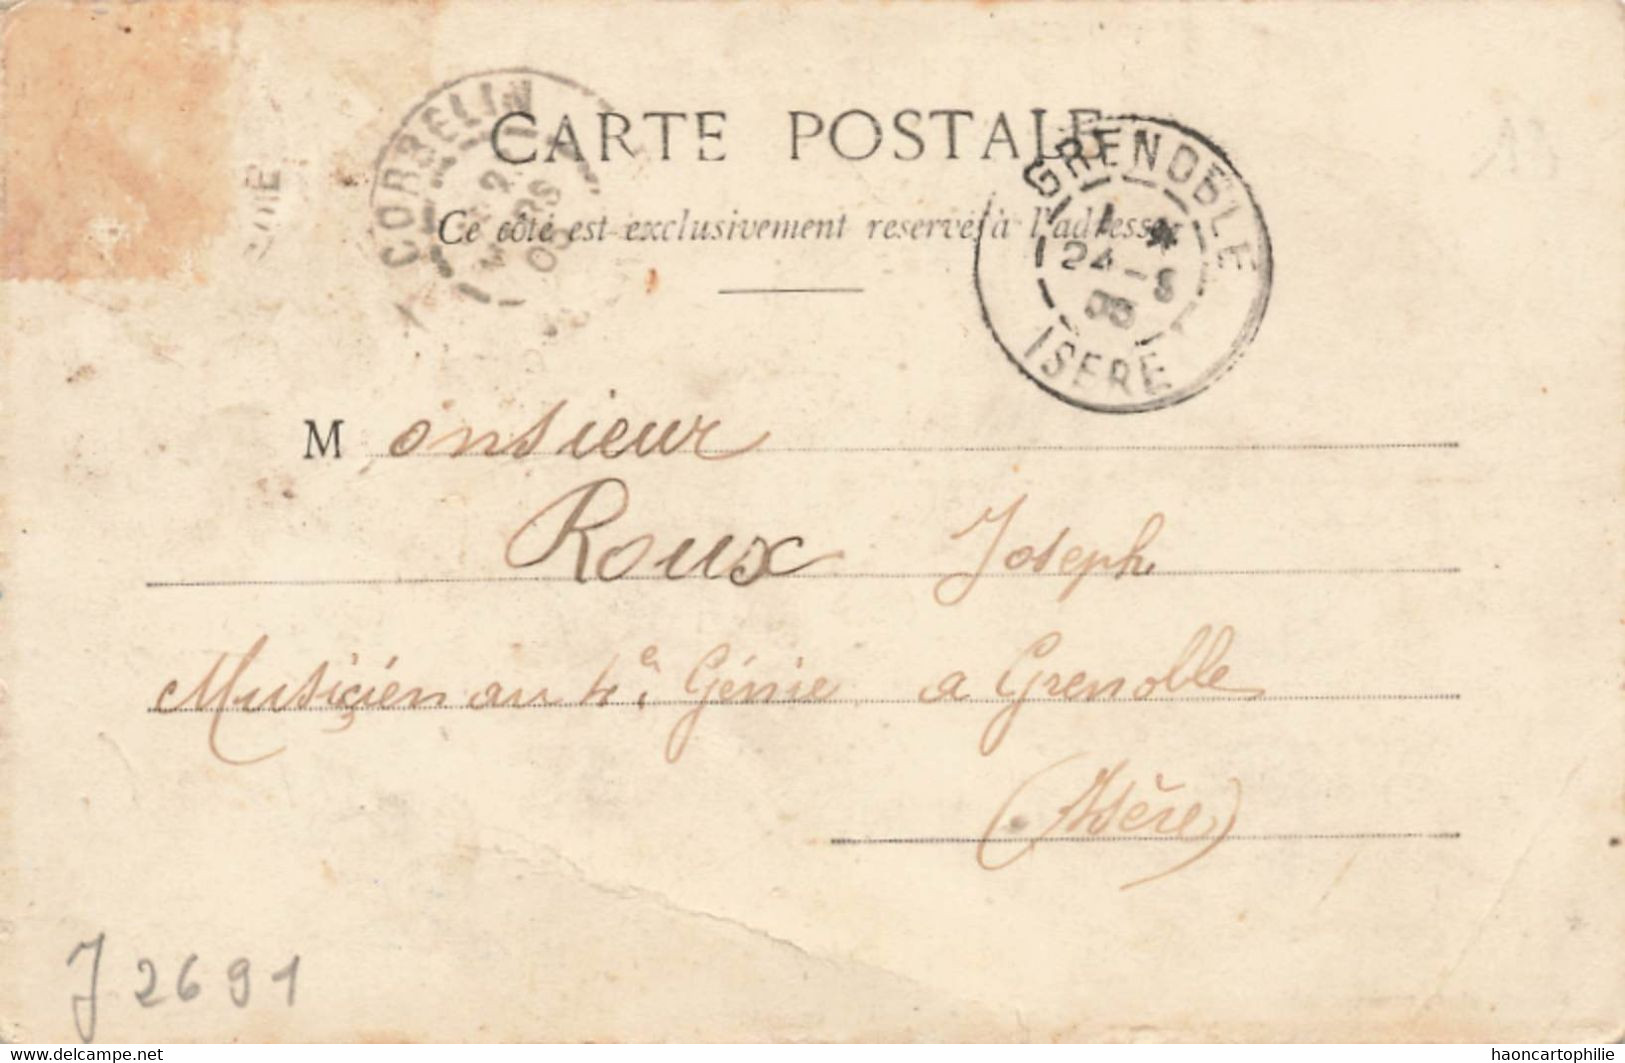 CORBELIN
CARTE POSTALE
GRENOBLE
1 *
24 - 8
05
ISERE
Ce côté est exclusivement reservé à l'adresse
Monsieur
Roux Joseph
Musicien au 4e Génie a Grenoble
(Isère)
J 2691
www.delcampe.net
haoncartophilie